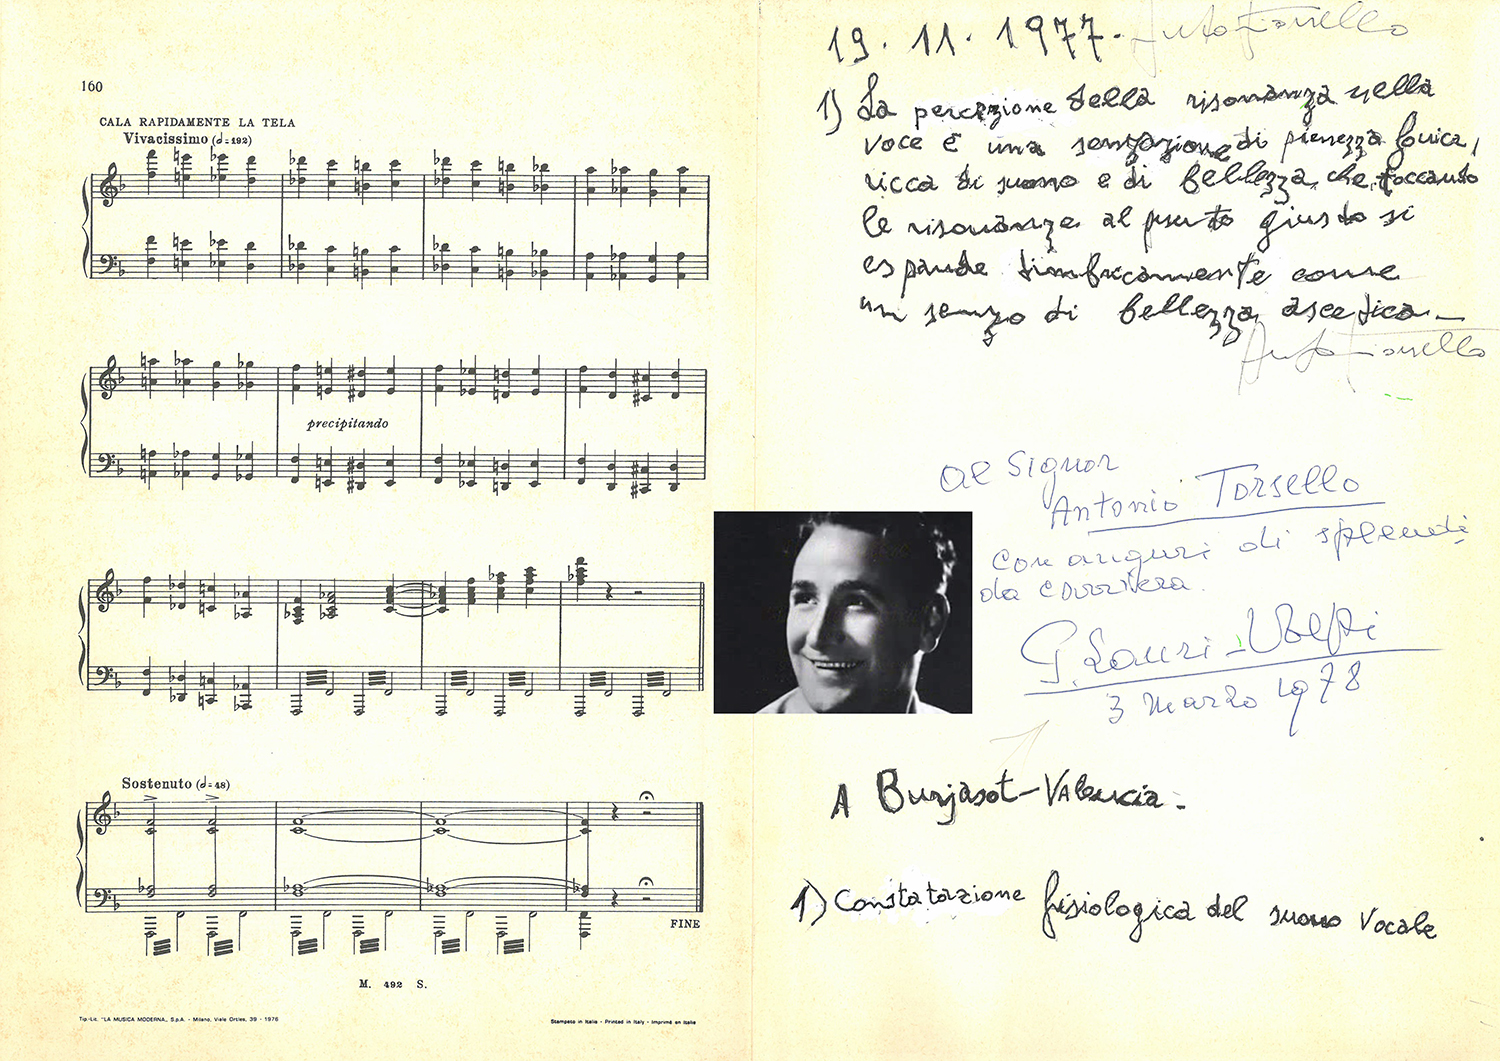 160
CALA RAPIDAMENTE LA TELA
Vivacissimo (𝅗𝅥=192)
precipitando
Sostenuto (𝅗𝅥=48)
FINE
M. 492 S.
Tip.-Lit. "LA MUSICA MODERNA„ S.p.A. - Milano, Viale Ortles, 39 - 1976
Stampato in Italia - Printed in Italy - Imprimé en Italie
19.11.1977.
1) La percezione della risonanza nella
voce è una senzazione di pienezza fonica,
ricca di suono e di bellezza, che toccando
le risonanze al punto giusto si
espande timbricamente come
un senzo di bellezza ascetica.
Al Signor
Antonio Torsello
con auguri di splendi
da carriera
G. Lauri-Volpi
3 marzo 1978
A Burjasot-Valencia.
1) Constatazione fisiologica del suono vocale